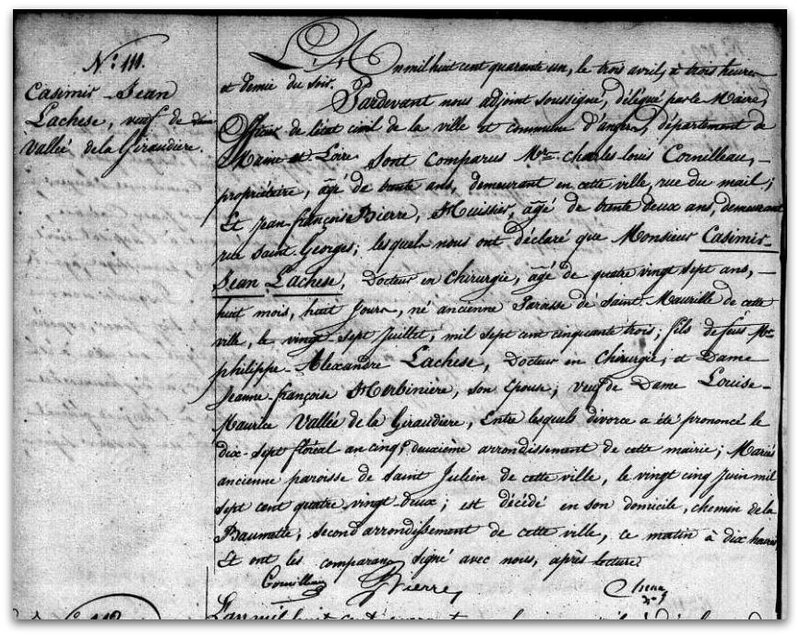 N: 111.
Casimir-Jean
Lachese, veuf de dme
Vallée de la Giraudière.
L'An mil huit cent quarante un, le trois avril, à trois heures
et demie du soir. Pardevant nous adjoint soussigné, délégué par le Maire,
Officier de l'état civil de la ville et commune d'angers, département de
Maine et Loire sont comparus Mrs charles Louis Cornilleau,
propriétaire, âgé de trente ans, demeurant en cette ville, rue du mail;
Et jean-françois Pierre, Huissier, âgé de trente deux ans, demeurant
rue Saint Georges; lesquels nous ont déclaré que Monsieur Casimir-
Jean Lachese, Docteur en Chirurgie, âgé de quatre vingt sept ans,
huit mois, huit jours, né ancienne Paroisse de Saint-Maurille de cette
ville, le vingt-sept Juillet, mil sept cent cinquante trois; fils de feus Mr
philippe-Alexandre Lachese, Docteur en Chirurgie, et Dame
Jeanne-françoise son Epouse; veuf de Dame Louise-
Maurice Vallée de la Giraudière, Entre lesquels divorce a été prononcé le
dix-sept floréal an cinq, deuxième arrondissement de cette mairie; Mariés
ancienne paroisse de Saint Julien de cette ville, le vingt cinq Juin mil
sept cent quatre vingt deux; est décédé en son domicile, chemin de la
Baumette, second arrondissement de cette ville, ce matin à dix heures
Et ont les comparans signé avec nous, après lecture.
Cornilleau Pierre
L'an mil huit cent quarante un